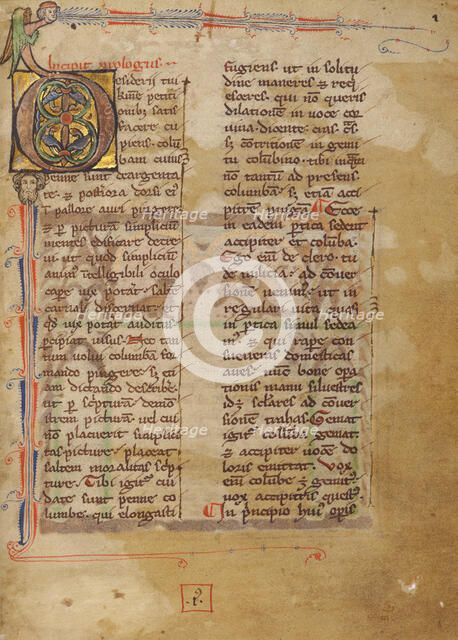 Incipit prologus
Desiderii tui
kmẽ petiti
onibus satis
facere cu
piens. colũ
bam cuius
penne sunt deargenta
te. & posteriora dorsi ei
ĩ pallore auri pingere.
& p̱ picturã simplicium
mentes edificare decre
ui. ut quod simplicium
animus intelligibili oculo
capere uix poterat. saltẽ
carnali discernat. et
qd̃ uix poterat auditus
percipiat uisus. Nec tan
tum uolui columbã for
mando pingere. sʒ eti
am dictando describe
re. ut p̱ scripturã demõ
strem picturã. uel cui
nõ placuerit simplici
tas picture. placeat
saltem moralitas scp̃
ture. Tibi igit̃ cui
date sunt penne co
lumbe. qui elongasti
fugiens. ut in solitu
dine maneres & req
esceres. qui nõ queris
dilationem in uoce cor
uina dicente. cras. cr̃s.
sʒ contritionem in gemi
tu columbino. tibi inquã
nõ tantũ ad presens
columbã. sʒ etiã acci
pitrem pingam. Ecce
in eadem pertica sedent
accipiter et colũba.
Ego eñi de clero. tu
de milicia. ad cõuer
sionem uenimus ut in
regulari uita quasi
in pertica simul sedea
mus. & qui rapere con
sueueras domesticas
aues. nunc bone ope
rationis manu siluestres
id ẽ seculares ad cõuer
sionem trahas. Gemat
igit̃ colũba gemat.
& accipiter uocẽ do
loris emittat. Vox
eñi colũbe & gemitus.
uox accipitris questus.
In principio huius operis
1
2
Heritage
Images